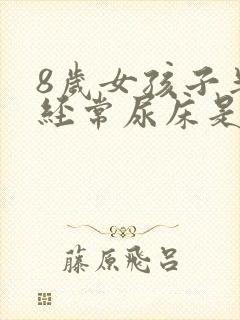 8歲女孩子
經常尿床是
藤原飛呂